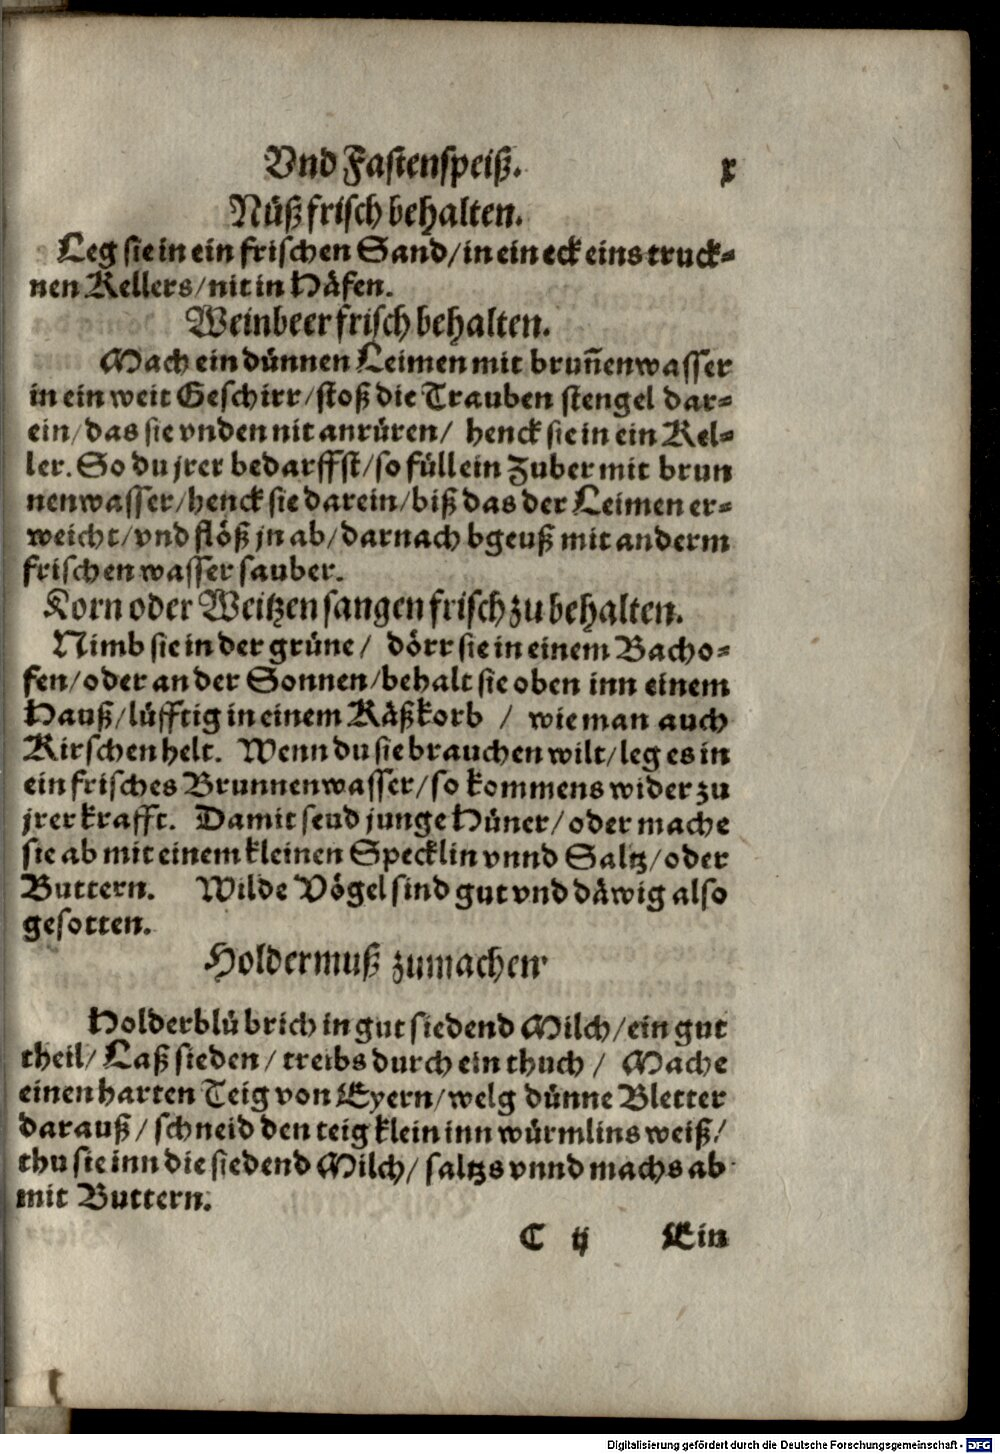 Vnd Fastenspeiß. x
Nüß frisch behalten.
Leg sie in ein frischen Sand/ in ein eck eins truck⸗
nen Kellers/ nit in Häfen.
Weinbeer frisch behalten.
Mach ein dünnen Leimen mit brun̄enwasser
in ein weit Geschirr/ stoß die Trauben stengel dar⸗
ein/ das sie vnden nit anrüren/ henck sie in ein Kel⸗
ler. So du jrer bedarffst/ so füll ein Zuber mit brun
nenwasser/ henck sie darein/ biß das der Leimen er⸗
weicht/ vnd flöß jn ab/ darnach bgeuß mit anderm
frischen wasser sauber.
Korn oder Weitzen sangen frisch zu behalten.
Nimb sie in der grüne/ dörr sie in einem Bacho⸗
fen/ oder an der Sonnen/ behalt sie oben inn einem
Hauß/ lüfftig in einem Käßkorb / wie man auch
Kirschen helt. Wenn du sie brauchen wilt/ leg es in
ein frisches Brunnenwasser/ so kommens wider zu
jrer krafft. Damit seud junge Hüner/ oder mache
sie ab mit einem kleinen Specklin vnnd Saltz/ oder
Buttern. Wilde Vögel sind gut vnd däwig also
gesotten.
Holdermuß zumachen
Holderblü brich in gut siedend Milch/ ein gut
theil/ Laß sieden/ treibs durch ein thuch / Mache
einen harten Teig von Eyern/ welg dünne Bletter
darauß/ schneid den teig klein inn würmlins weiß/
thu sie inn die siedend Milch/ saltzs vnnd machs ab
mit Buttern.
C ij Ein
Digitalisierung gefördert durch die Deutsche Forschungsgemeinschaft - DFG